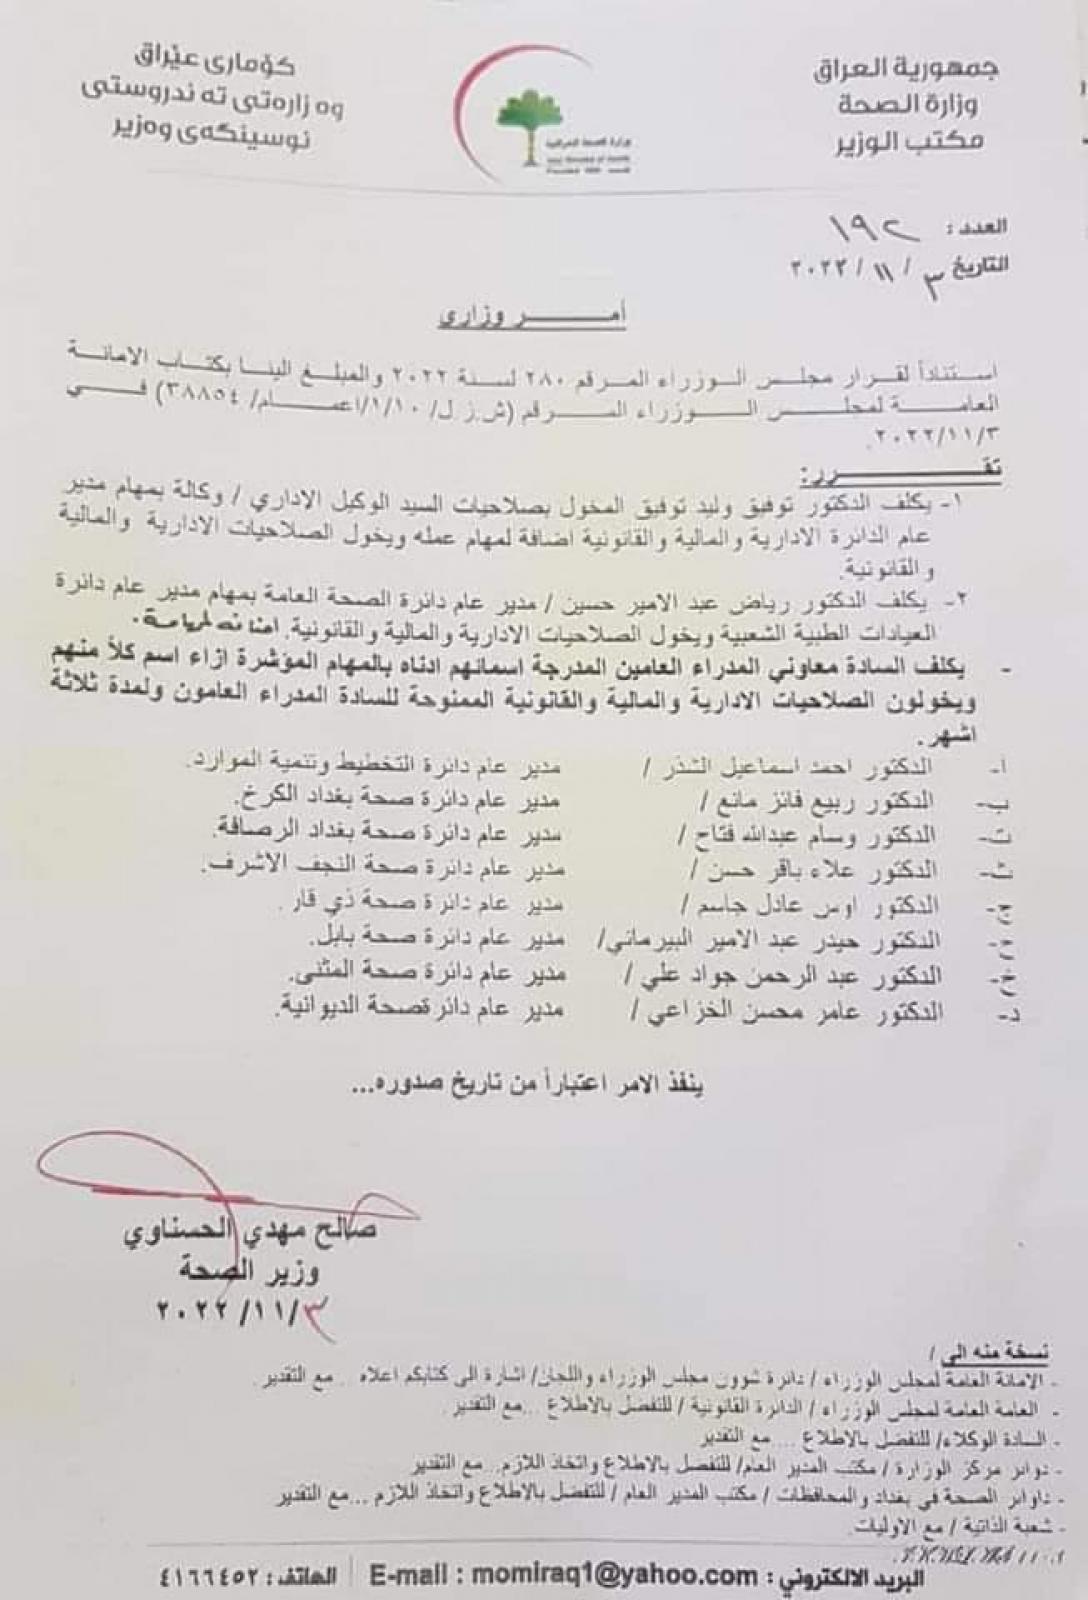 جمهورية العراق
وزارة الصحة
مكتب الوزير
كۆماری عێراق
وه زارەتی ته ندروستی
نوسینگەی وەزیر
وزارة الصحة العراقية
العدد : ١٩٢
التاريخ ٣ / ١١ / ٢٠٢٢
أمـــر وزاري
استناداً لقرار مجلس الوزراء المرقم ٢٨٠ لسنة ٢٠٢٢ والمبلغ الينا بكتاب الامانة
العامة لمجلس الوزراء المرقم (ش.ز.ل/ ١/١/١٠/اعمام/ ٣٨٨٥٤) في
٢٠٢٢/١١/٣.
تقـــرر:
١- يكلف الدكتور توفيق وليد توفيق المخول بصلاحيات السيد الوكيل الاداري / وكالة بمهام مدير
عام الدائرة الادارية والمالية والقانونية اضافة لمهام عمله ويخول الصلاحيات الادارية والمالية
والقانونية.
٢- يكلف الدكتور رياض عبد الامير حسين / مدير عام دائرة الصحة العامة بمهام مدير عام دائرة
العيادات الطبية الشعبية ويخول الصلاحيات الادارية والمالية والقانونية.
- يكلف السادة معاوني المدراء العامين المدرجة اسمائهم ادناه بالمهام المؤشرة ازاء اسم كلاً منهم
ويخولون الصلاحيات الادارية والمالية والقانونية الممنوحة للسادة المدراء العامون ولمدة ثلاثة
اشهر.
أ- الدكتور احمد اسماعيل الشذر / مدير عام دائرة التخطيط وتنمية الموارد.
ب- الدكتور ربيع فائز مانع / مدير عام دائرة صحة بغداد الكرخ.
ت- الدكتور وسام عبدالله فتاح / مدير عام دائرة صحة بغداد الرصافة.
ث- الدكتور علاء باقر حسن / مدير عام دائرة صحة النجف الاشرف.
ج- الدكتور اوس عادل جاسم / مدير عام دائرة صحة ذي قار .
ح- الدكتور حيدر عبد الامير البيرماني/ مدير عام دائرة صحة بابل.
خ- الدكتور عبد الرحمن جواد علي / مدير عام دائرة صحة المثنى.
د- الدكتور عامر محسن الخزاعي / مدير عام دائرةصحة الديوانية.
ينفذ الامر اعتباراً من تاريخ صدوره...
صالح مهدي الحسناوي
وزير الصحة
٣/ ١١/ ٢٠٢٢
نسخة منه الى /
- الامانة العامة لمجلس الوزراء / دائرة شوون مجلس الوزراء واللجان/ اشارة الى كتابكم اعلاه .. مع التقدير
- العامة العامة لمجلس الوزراء / الدائرة القانونية / للتفضل بالاطلاع ...مع التقدير.
- السادة الوكلاء/ للتفضل بالاطلاع .... مع التقدير
- دوائر مركز الوزارة / مكتب المدير العام/ للتفضل بالاطلاع واتخاذ اللازم.. مع التقدير
- داوائر الصحة في بغداد والمحافظات / مكتب المدير العام / للتفضل بالاطلاع واتخاذ اللازم ...مع التقدير
- شعبة الذاتية / مع الاوليات.
البريد الالكتروني : E-mail : momiraq1@yahoo.com | الهاتف : ٤١٦٦٤٥٢